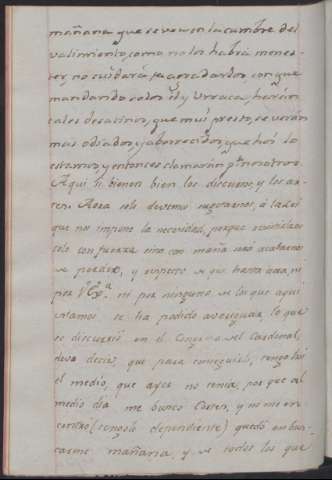 mañana que se vean en la cumbre del
valimiento, como no los habrá menes-
ter, no cuidará ya agradarlos, con que
mandando solos él y Urraca, harán
tales desatinos, que mui presto se verán
mas odiados, y aborrecidos que hoi lo
estamos, y entonces clamarán pr nosotros.
Aqui si bienen bien los discursos, y los ar-
tes. Aora solo devemos sugetarnos, á la lei
que nos impone la necesidad, porque
solo con fuerza sino con maña
se podrá, y respecto de que hasta aora, ni
por V. Exa. ni por ninguno de los que aqui
estamos se ha podido averiguar lo que
se discurrió en el Congreso del Cardenal,
devo decir, que para conseguirlo, tengo hoi
el medio, que ayer no tenia, por que al
medio dia me buscó Cortes, y no me en-
contró (tengole dependiente) quedó en bus-
carme mañana, y de todos los que